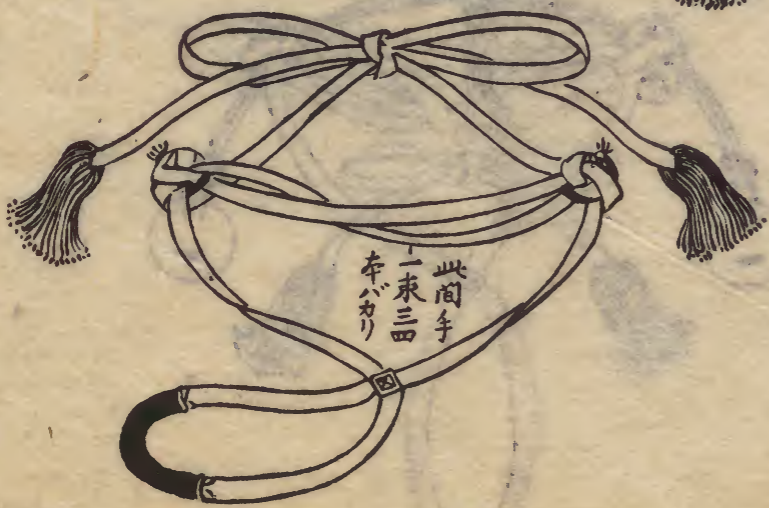 此間手
一束三四
本バカリ